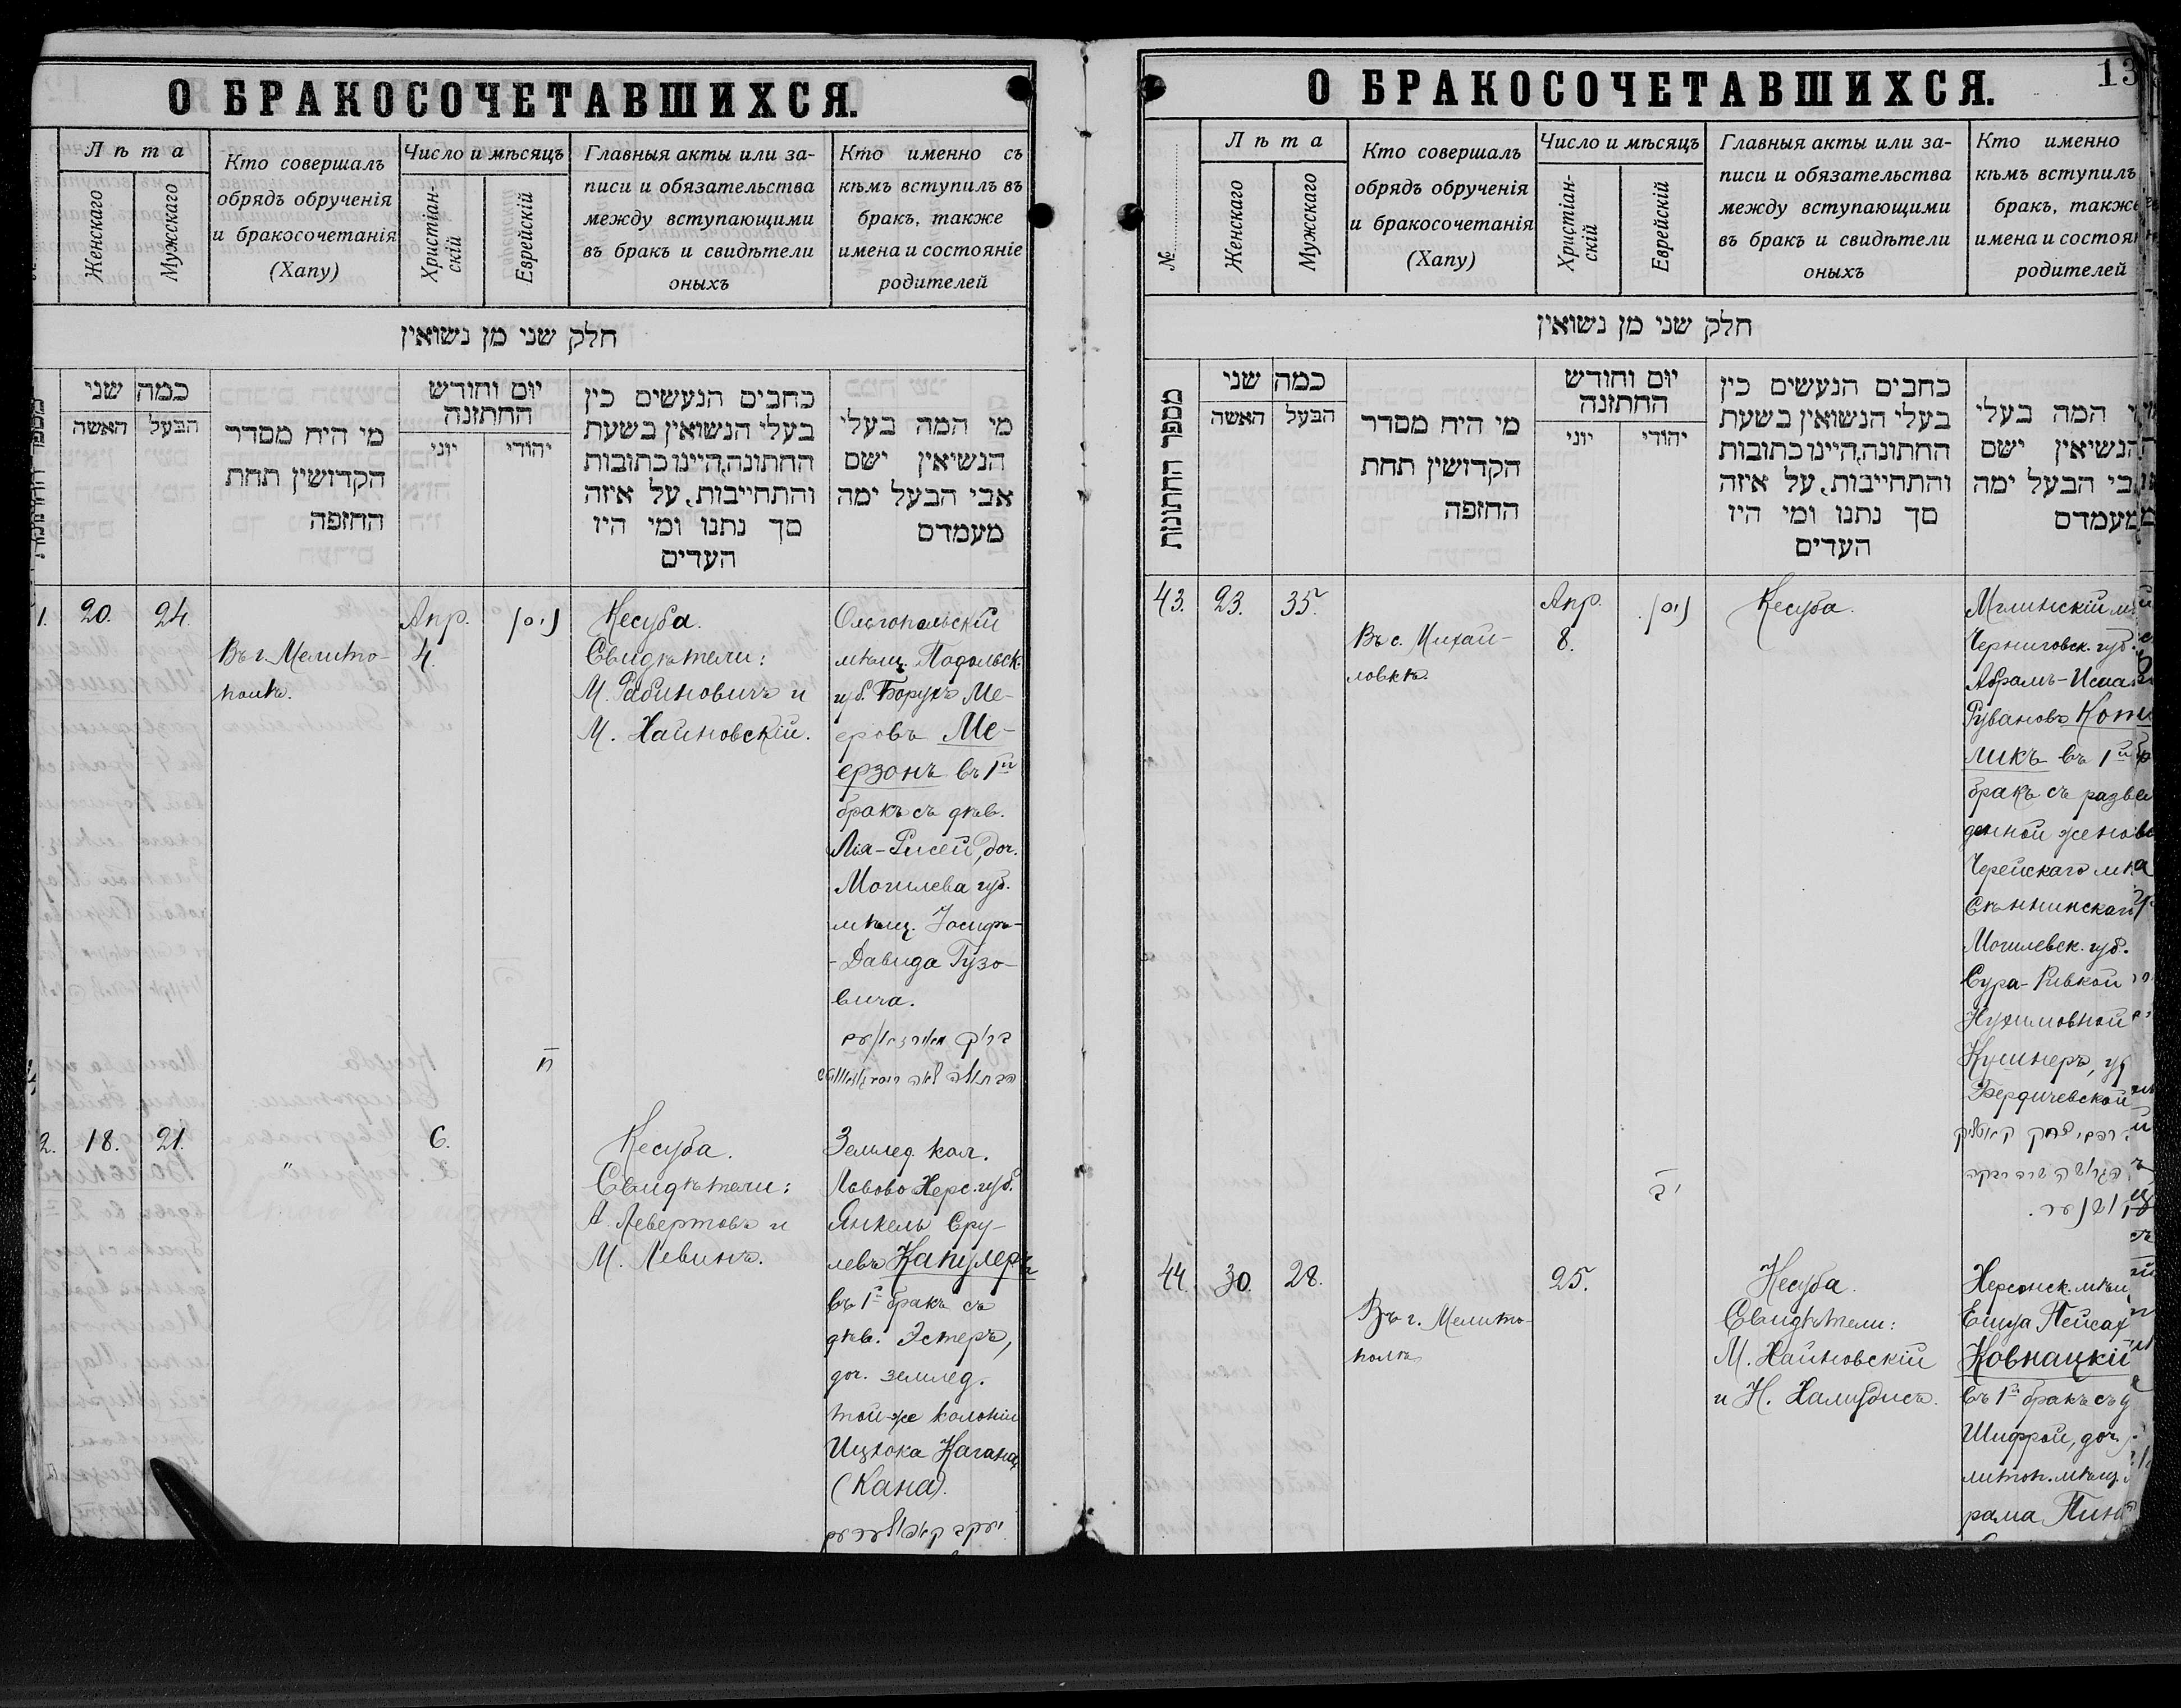 О БРАКОСОЧЕТАВШИХСЯ.
Лѣта
Женскаго
Мужскаго
Кто совершалъ
обрядъ обрученія
и бракосочетанія
(Хапу)
Число и мѣсяцъ
Христіан-
скій
Еврейскій
Главныя акты или за-
писи и обязательства
между вступающими
въ бракъ и свидѣтели
оныхъ
Кто именно съ
кѣмъ вступилъ въ
бракъ, также
имена и состояніе
родителей
חלק שני מן נשואין
כמה שני
האשה
הבעל
מי היח מסדר
הקדושין תחת
החזפה
יום וחודש
החתזנה
יוני
יהודי
כחבים הנעשים כין
בעלי הנשואין בשעת
החתונה, היינו כתובות
והתחייבות, על איזה
סך נתנו ומי היז
העדים
מי המה בעלי
הנשיאין ישם
אבי הבעל ימה
מעמדם
1. 20. 24.
Въ г. Мелито-
полѣ.
Апр.
4.
ניסן
ח
Кесуба.
Свидѣтели:
М. Рабиновичъ и
М. Хайновскій.
Ольгопольскій
мѣщ. Подольск.
губ. Борухъ Ме-
еровъ Ме-
ерзонъ въ 1й
бракъ съ дѣв.
Лія-Рисей, доч.
Могилева губ.
мѣщ. Іосифъ-
-Давида Гузо-
вича.
2. 18. 21.
"
6.
Кесуба.
Свидѣтели:
А. Левертовъ и
М. Левинъ.
Землед. кол.
Львово Херс. губ.
Янкель Сру-
левъ Капулеръ
въ 1й бракъ съ
дѣв. Эстеръ,
доч. землед.
той-же колоніи
Ицхока Кагана
(Кана).
О БРАКОСОЧЕТАВШИХСЯ.
13
№
Лѣта
Женскаго
Мужскаго
Кто совершалъ
обрядъ обрученія
и бракосочетанія
(Хапу)
Число и мѣсяцъ
Христіан-
скій
Еврейскій
Главныя акты или за-
писи и обязательства
между вступающими
въ бракъ и свидѣтели
оныхъ
Кто именно
кѣмъ вступилъ
бракъ, также
имена и состоя
родителей
חלק שני מן נשואין
מספר החתונות
כמה שני
האשה
הבעל
מי היח מסדר
הקדושין תחת
החזפה
יום וחודש
החתזנה
יוני
יהודי
כחבים הנעשים כין
בעלי הנשואין בשעת
החתונה, היינו כתובות
והתחייבות, על איזה
סך נתנו ומי היז
העדים
המה בעלי
הנשיאין ישם
בי הבעל ימה
מעמדם
43. 23. 35.
Въ с. Михай-
ловкѣ.
Апр.
8.
ניסן.
יב
Кесуба.
Мглинскій
Черниговск. губ.
Абрамъ-
Рувановъ
ликъ въ 1й
бракъ съ разве
денной
Черейскаго
Сѣннинскаго
Могилевск. губ.
Сура-Ривкой
Нухимовной
Кушнеръ,
Бердичевской
44. 30. 28.
Въ г. Мелито-
полѣ
25.
Кесуба.
Свидѣтели:
М. Хайновскій
и Н. Халибисъ.
Херсонск.
Енуа Пейсах
Ковнацкій
въ 1й бракъ съ
Шифрой, доч.
литоп. мѣщ.
рама